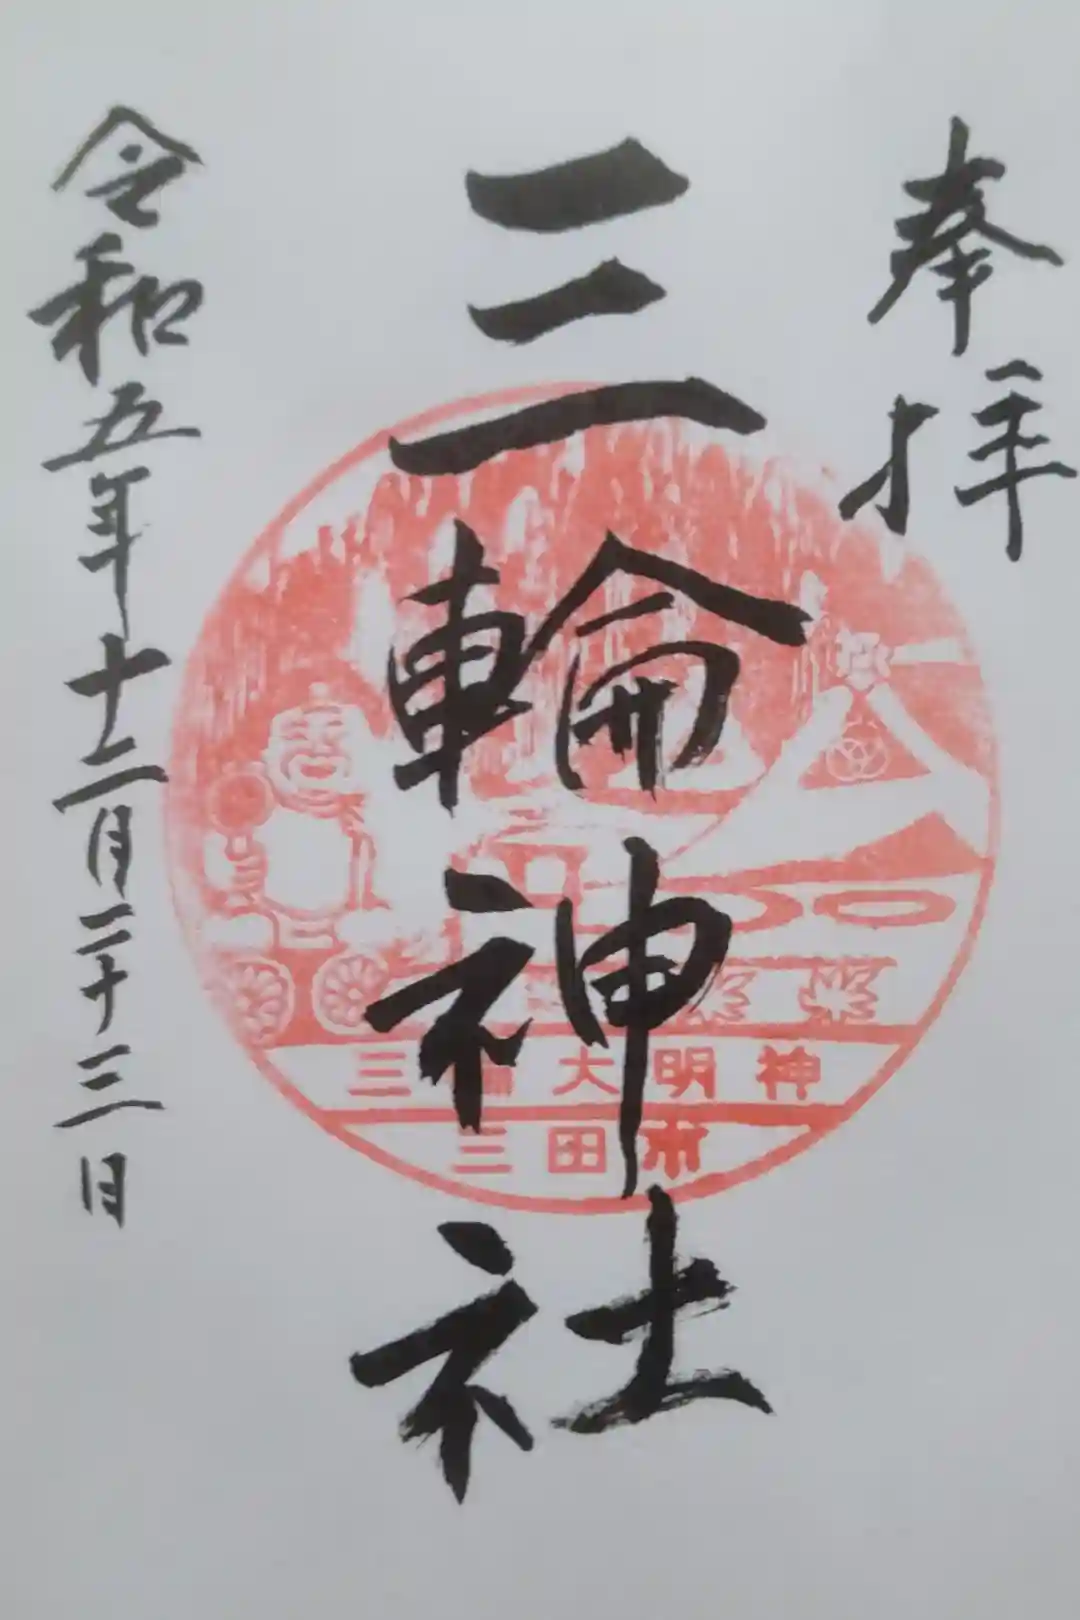 奉拝
三輪神社
三輪大明神
三田市
令和五年十二月二十三日